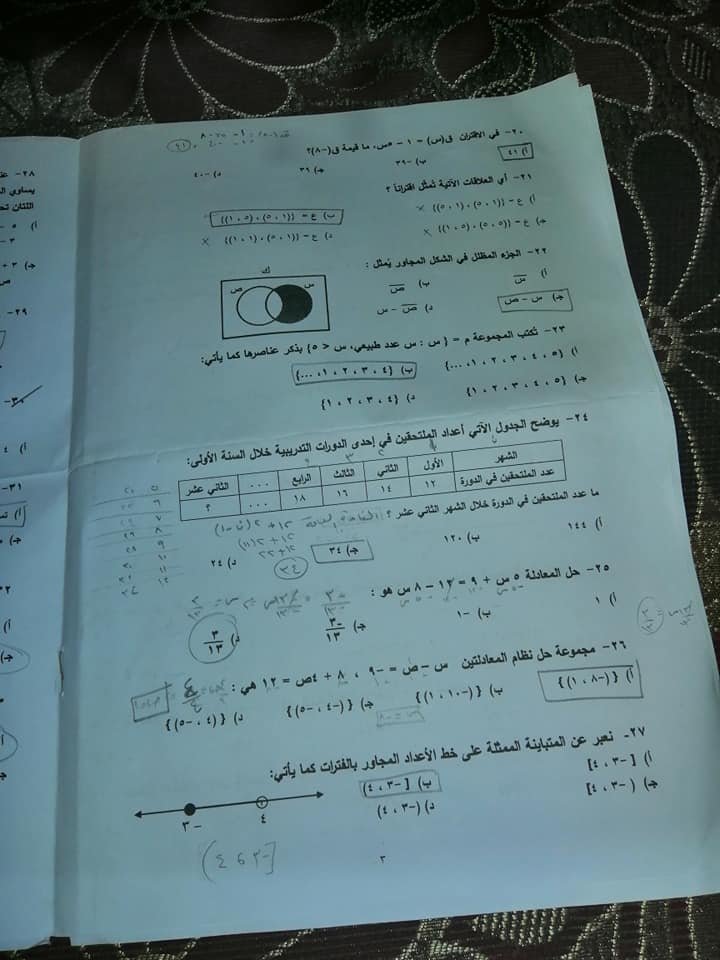 ٢٠- في الاقتران ق(س) = ١ - ٥س، ما قيمة ق(-٨)؟
أ) ٤١ ب) -٣٩ ج) ٣٩ د) -٤٠
٢١- أي العلاقات الآتية تُمثل اقتراناً ؟
أ) ع = {(١ ، ٥) ، (١ ، ٥)} × ب) ع = {(١ ، ٥) ، (٥ ، ١)}
ج) ع = {(٥ ، ٥) ، (٥ ، ١)} × د) ع = {(١ ، ٥) ، (١ ، ١)} ×
٢٢- الجزء المظلل في الشكل المجاور يُمثل :
ك
س ص
أ) س ب) ص
ج) س - ص د) ص - س
٢٣- تُكتب المجموعة م = { س : س عدد طبيعي، س < ٥} بذكر عناصرها كما يأتي:
أ) {٥ ، ٤ ، ٣ ، ٢ ، ١ ، ...} ب) {٤ ، ٣ ، ٢ ، ١ ، ...}
ج) {٥ ، ٤ ، ٣ ، ٢ ، ١} د) {٤ ، ٣ ، ٢ ، ١}
٢٤- يوضح الجدول الآتي أعداد الملتحقين في إحدى الدورات التدريبية خلال السنة الأولى:
الشهر الأول الثاني الثالث الرابع ... الثاني عشر
عدد الملتحقين في الدورة ١٢ ١٤ ١٦ ١٨ ... ؟
ما عدد الملتحقين في الدورة خلال الشهر الثاني عشر ؟
١٢ + ٢(ن-١)
١٢ + ٢(١١)
١٢ + ٢٢
٣٤
أ) ١٤٤ ب) ١٢٠ ج) ٣٤ د) ٢٤
٢٥- حل المعادلة ٥ س + ٩ = ١٢ - ٨ س هو :
أ) ١ ب) -١ ج) -٣/١٣ د) ٣/١٣
٢٦- مجموعة حل نظام المعادلتين س - ص = -٩ ، ٨ + ٤ص = ١٢ هي :
أ) {(-٨ ، ١)} ب) {(-١٠ ، ١)} ج) {(-٤ ، -٥)} د) {(٤ ، -٥)}
س = -٨
٢٧- نعبر عن المتباينة الممثلة على خط الأعداد المجاور بالفترات كما يأتي:
أ) [-٣ ، ٤] ب) [-٣ ، ٤)
ج) (-٣ ، ٤] د) (-٣ ، ٤)
-٣ ٤
[-٣ ، ٤)
٣
٢٨- عند
يساوي
اللتان
أ) ٥
ج) ٣
٢٩-
٣١-